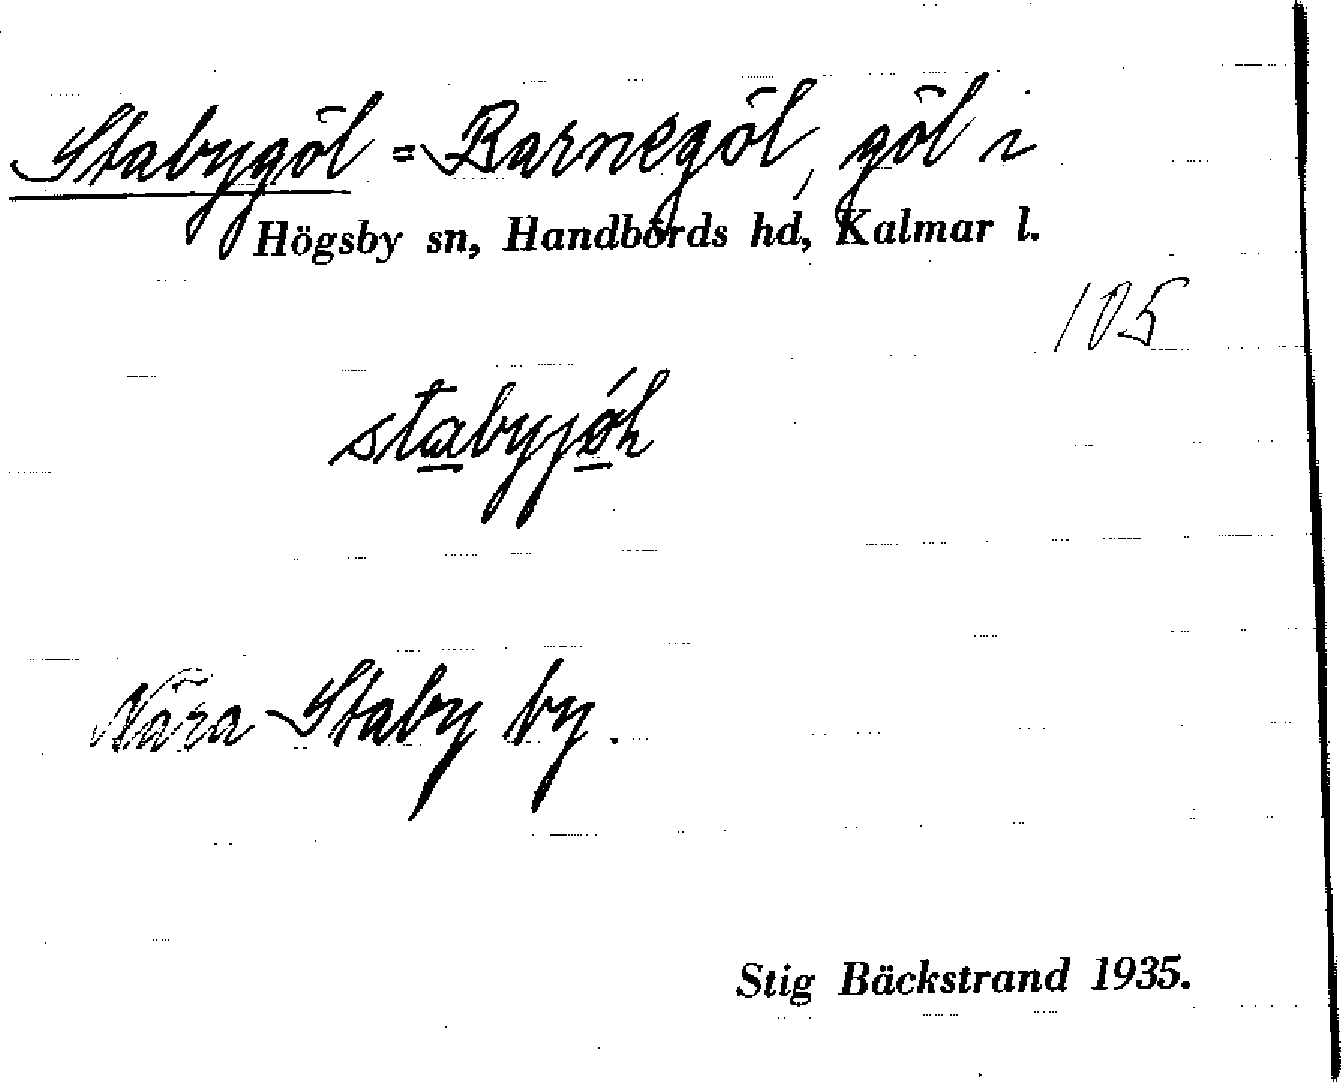 Stabygöl = Barnegöl, göl i
Högsby sn, Handbörds hd, Kalmar l.
105
Nära Staby by.
Stig Bäckstrand 1935.